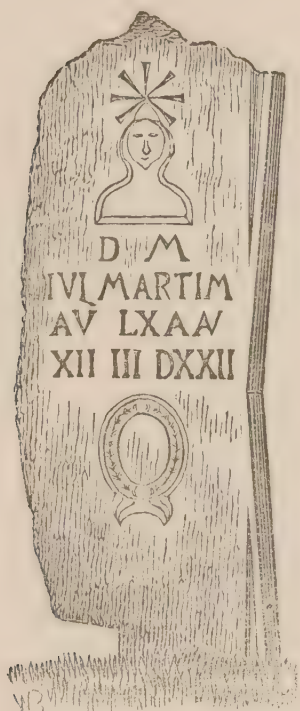 D M
IVL MARTIM
AV LXAN
XII III DXXII